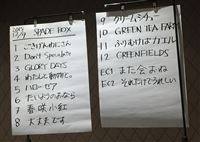 SPADE BOX
1 ごきげんわにさん
2 Don't Speculate
3 GLORY DAYS
4 わたしと動物と。
5 ハローセブ
6 たいようのおなら
7 春咲小紅
8 大丈夫です
9 クリームシチュー
10 GREEN TEA FARM
11 ふりむけばカエル
12 GREENFIELDS
EC1 また会おね
EC2 それだけでうれしい